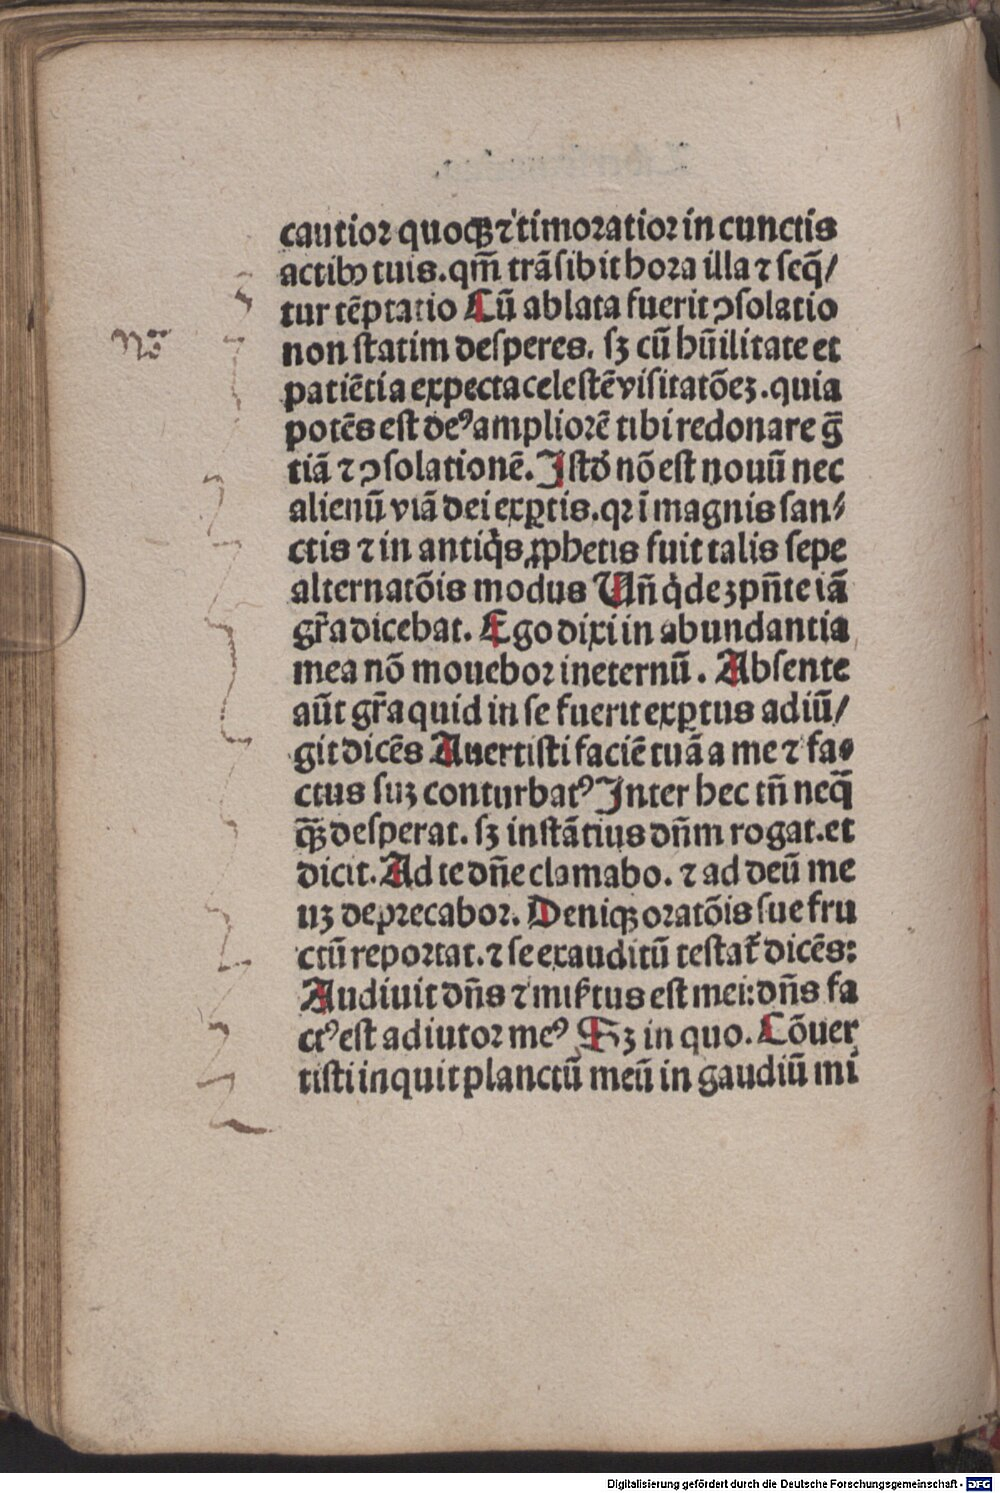 cautior quoqꝫ ⁊ timoratior in cunctis
actibꝰ tuis. qm̄ trāsibit hora illa ⁊ seq̄/
tur tēptatio Cū ablata fuerit ↄsolatio
non statim desperes. sꝫ cū hūilitate et
patiētia expecta celestē visitatōeꝫ. quia
potēs est deꝰ ampliorē tibi redonare gr̄
tiā ⁊ ↄsolationē. Istđ nō est nouū nec
alienū viā dei exꝑtis. qꝛ ī magnis san⸗
ctis ⁊ in antiq̇s ꝓphetis fuit talis sepe
alternatōis modus Uñ q̇deꝫ pn̄te iā
gr̄a dicebat. Ego dixi in abundantia
mea nō mouebor in eternū. Absente
aūt gr̄a quid in se fuerit exꝑtus adiū/
git dicēs Auertisti faciē tuā a me ⁊ fa⸗
ctus suꝫ conturbatꝰ Inter hec tn̄ neq̄
q̄ꝫ desperat. sꝫ instātius dn̄m rogat. et
dicit. Ad te dn̄e clamabo. ⁊ ad deū me
uꝫ deprecabor. Deniqꝫ oratōis sue fru
ctū reportat. ⁊ se exauditū testat᷑ dicēs:
Audiuit dn̄s ⁊ mis̄tus est mei: dn̄s fa
ctꝰ est adiutor meꝰ Sꝫ in quo. Cōuer
tisti inquit planctū meū in gaudiū mi
Digitalisierung gefördert durch die Deutsche Forschungsgemeinschaft - DFG